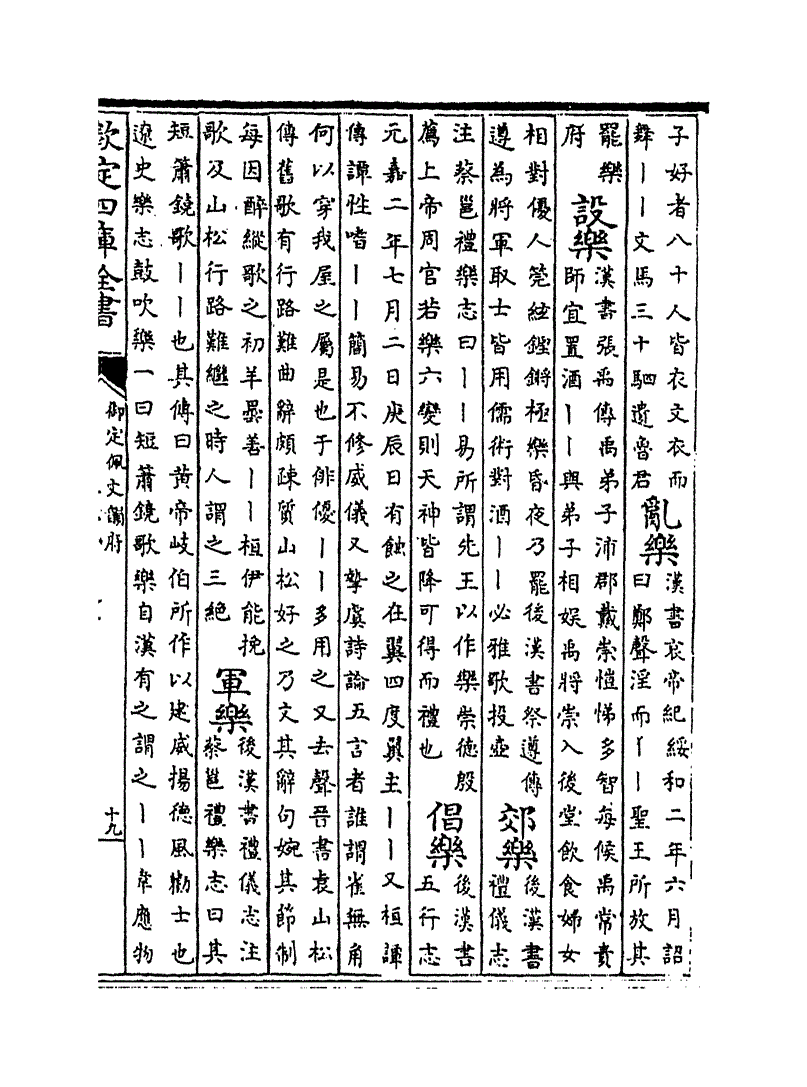 子好者八十人皆衣文衣而
舞丨丨文馬三十駟遺魯君
亂樂
漢書哀帝紀綏和二年六月詔
曰鄭聲淫而丨丨聖王所放其
罷樂
府
設樂
漢書張禹傳禹弟子沛郡戴崇愷悌多智每候禹常責
師宜置酒丨丨與弟子相娱禹將崇入後堂飲食婦女
相對優人筦絃鏗鏘極樂昏夜乃罷後漢書祭遵傳
遵為將軍取士皆用儒術對酒丨丨必雅歌投壺
郊樂
後漢書
禮儀志
注蔡邕禮樂志曰丨丨易所謂先王以作樂崇德殷
薦上帝周官若樂六變則天神皆降可得而禮也
倡樂
後漢書
五行志
元嘉二年七月二日庚辰日有蝕之在翼四度翼主丨丨又桓譚
傳譚性嗜丨丨簡易不修威儀又摯虞詩論五言者誰謂雀無角
何以穿我屋之屬是也于俳優丨丨多用之又去聲晉書袁山松
傳舊歌有行路難曲辭頗疎質山松好之乃文其辭句婉其節制
每因醉縱歌之初羊曇善丨丨桓伊能挽
歌及山松行路難繼之時人謂之三絶
軍樂
後漢書禮儀志注
蔡邕禮樂志曰其
短簫鐃歌丨丨也其傳曰黄帝岐伯所作以建威揚德風勸士也
遼史樂志鼓吹樂一曰短簫鐃歌樂自漢有之謂之丨丨韋應物
欽定四庫全書
御定佩文韻府
十九